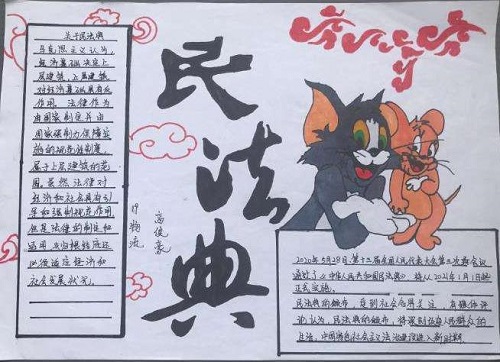 关于民法典
马克思主义认为，
经济基础决定上
层建筑，上层建筑
对经济基础具有反
作用，法律作为
由国家制定并由
国家强制力保障实
施的规范性制度，
属于上层建筑的范
围。虽然法律对
经济和社会具有引
导和强制规范作用
但是法律的制定和
运用，又
以适应经济和
社会发展状况。
民法典
高俊豪
2020年5月28日，第十三届全国人民代表大会第三次会议
通过了《中华人民共和国民法典》，将从2021年1月1日起
正式实施。
民法典的颁布，受到社会各界关注，有媒体评
论认为，民法典的颁布，将深刻改变人民群众的
生活，中国特色社会主义法治建设进入新时期。